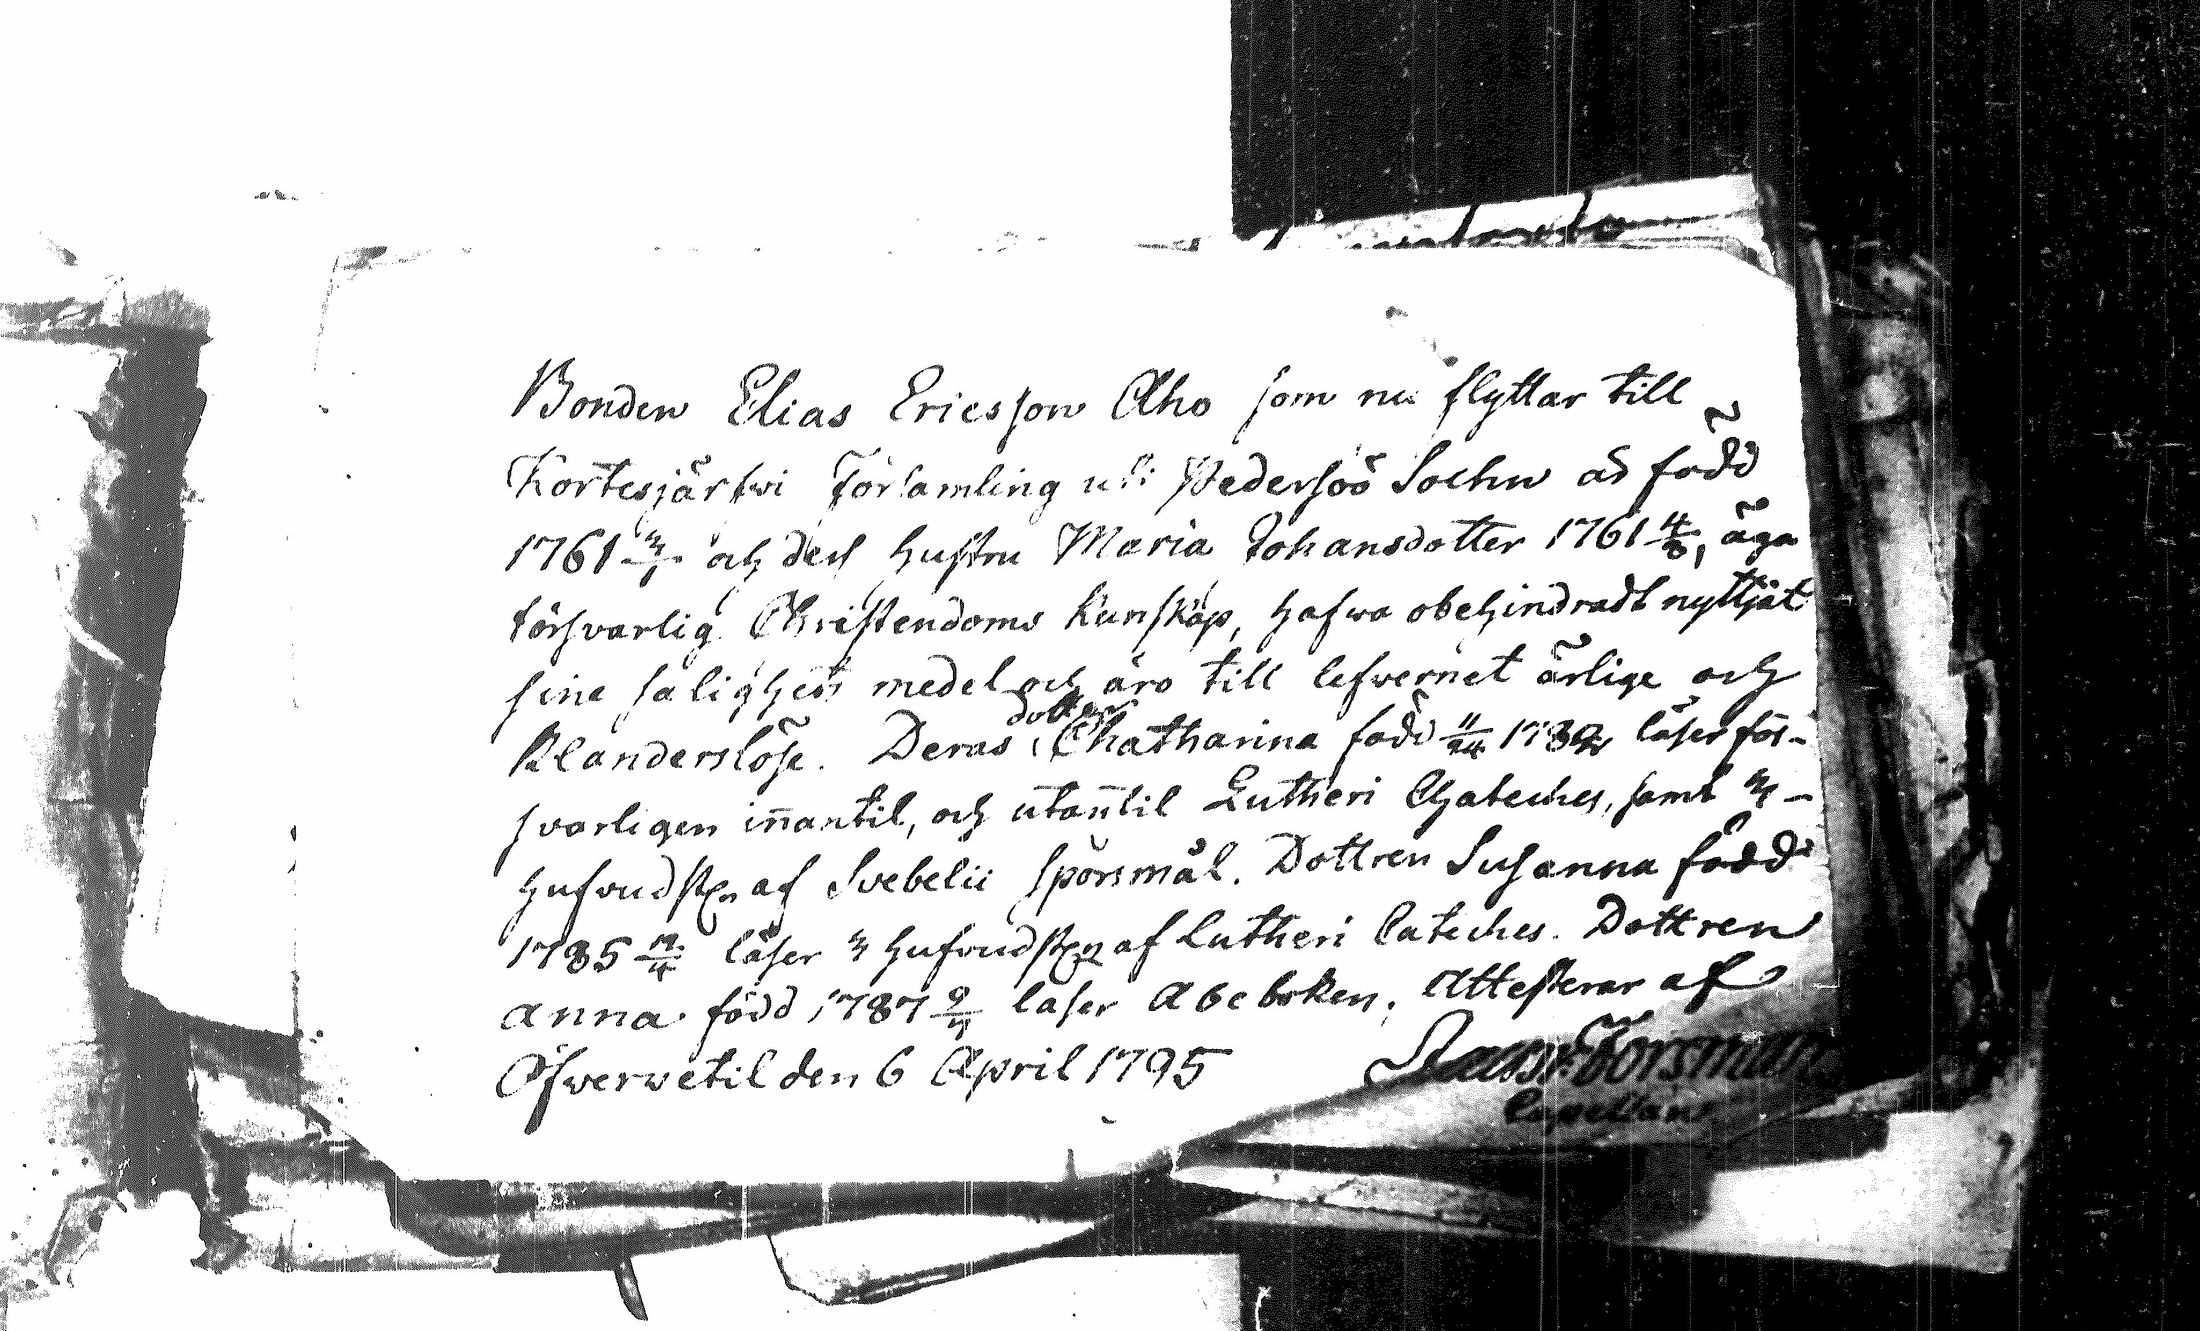 Bonden Elias Ericsson Aho som nu flyttar till
Kortesjärfwi Församling uti Pedersöö Sochn är född
1761 3/1 och dess hustru Maria Johansdotter 1761 4/8, äga
försvarlig Christendoms kunskap, hafwa obehindradt nyttjat
sine salighets medel och äro till lefwernet ärlige och
Klanderslöse. Deras dotter Chatharina född 11/24 1782 läser för-
svarligen iñantil, och utañtil Lutheri Chateches, samt 3 -
hufwudst. af Svebelii spörsmål. Dottren Susanna född
1785 12/4 läser 3 hufwudst. af Lutheri Cateches. Dottren
Anna född 1787 9/7 läser Abeboken. Attesterar af
Öfwerwetil den 6 April 1795 Forsman
Capellan